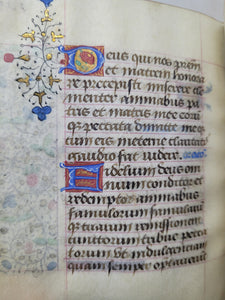 Deus qui nos prem
et matrem honora
re precepisti miserere cle
menter animabus pa
tris et matris mee eorũ
que peccata dimitte meq̃
eum eterne claritatis
gaudio fac uidere
Fidelium deus om
nium conditor et
redemptor animabus
famulorum famularũ
que tuarum remissionem
cunctorum tribue pecca
torum ut indulgenciam
quam semper optauerunt